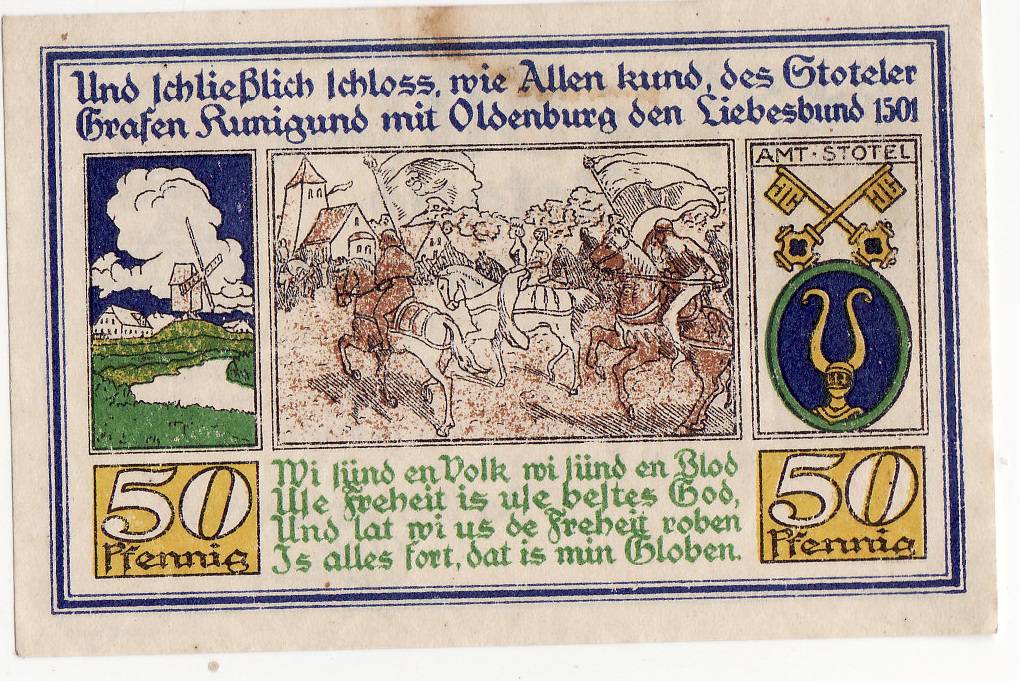 Und schließlich schloss, wie Allen kund, des Stoteler
Grafen Kunigund mit Oldenburg den Liebesbund 1501
AMT · STOTEL
Wi sünd en Volk wi sünd en Blod
Use Freheit is use bestes God,
Und lat wi us de Freheit roben
Is alles fort, dat is min Globen.
50
Pfennig
50
Pfennig